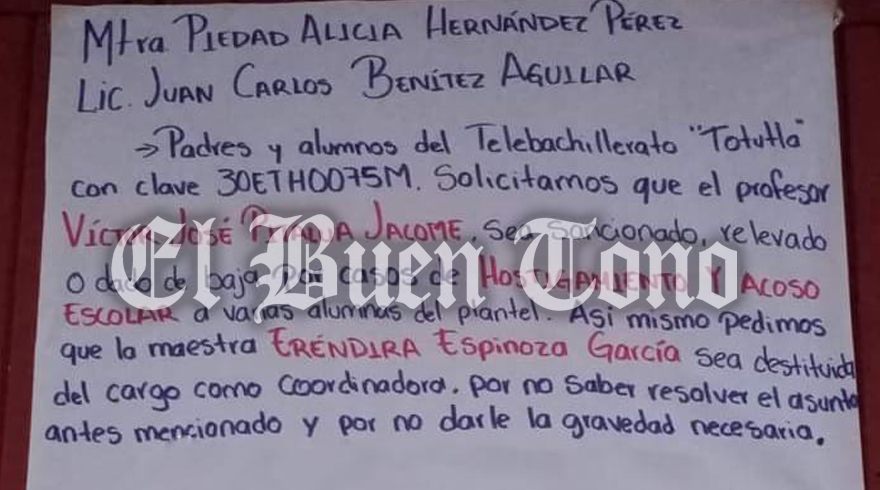 Mtra PIEDAD ALICIA HERNÁNDEZ PÉREZ
LIC. JUAN CARLOS BENÍTEZ AGUILAR
→ Padres y alumnos del Telebachillerato "Totutla"
con clave 30ETH0075M. Solicitamos que el profesor
VÍCTOR JOSÉ JACOME, sea sancionado, relevado
o dado de baja por casos de HOSTIGAMIENTO Y ACOSO
ESCOLAR a varias alumnas del plantel. Asi mismo pedimos
que la maestra ERÉNDIRA Espinoza García sea destituida
del cargo como coordinadora. por no saber resolver el asunto
antes mencionado y por no darle la gravedad necesaria.
El Buen Tono